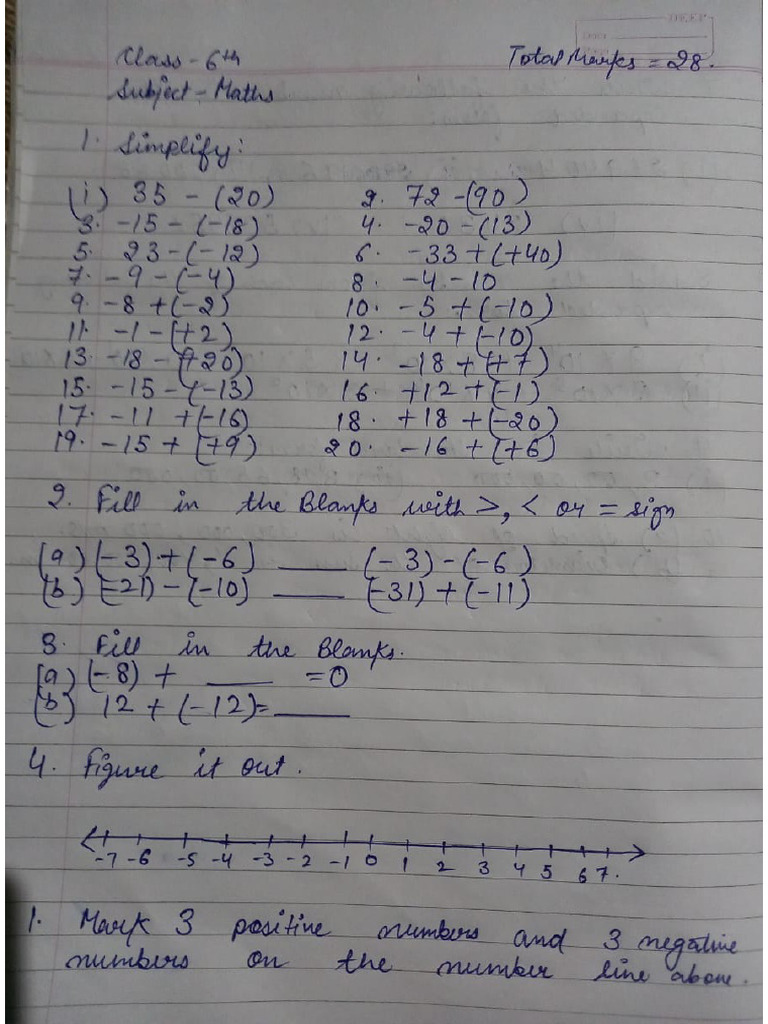 Class - 6th Total Marks = 28.
Subject - Maths
1. Simplify:
(i) 35 - (20) 2. 72 - (90)
3. -15 - (-18) 4. -20 - (13)
5. 23 - (-12) 6. -33 + (+40)
7. -9 - (-4) 8. -4 - 10
9. -8 + (-2) 10. -5 + (-10)
11. -1 - (+2) 12. -4 + (-10)
13. -18 - (+20) 14. -18 + (+7)
15. -15 - (-13) 16. +12 + (-1)
17. -11 + (-16) 18. +18 + (-20)
19. -15 + (+9) 20. -16 + (+6)
2. Fill in the Blanks with >, < or = sign
(a) (-3) + (-6) ____ (-3) - (-6)
(b) (-21) - (-10) ____ (-31) + (-11)
3. Fill in the Blanks.
(a) (-8) + ____ = 0
(b) 12 + (-12) = ____
4. Figure it out.
-7 -6 -5 -4 -3 -2 -1 0 1 2 3 4 5 6 7.
1. Mark 3 positive numbers and 3 negative
numbers on the number line above.